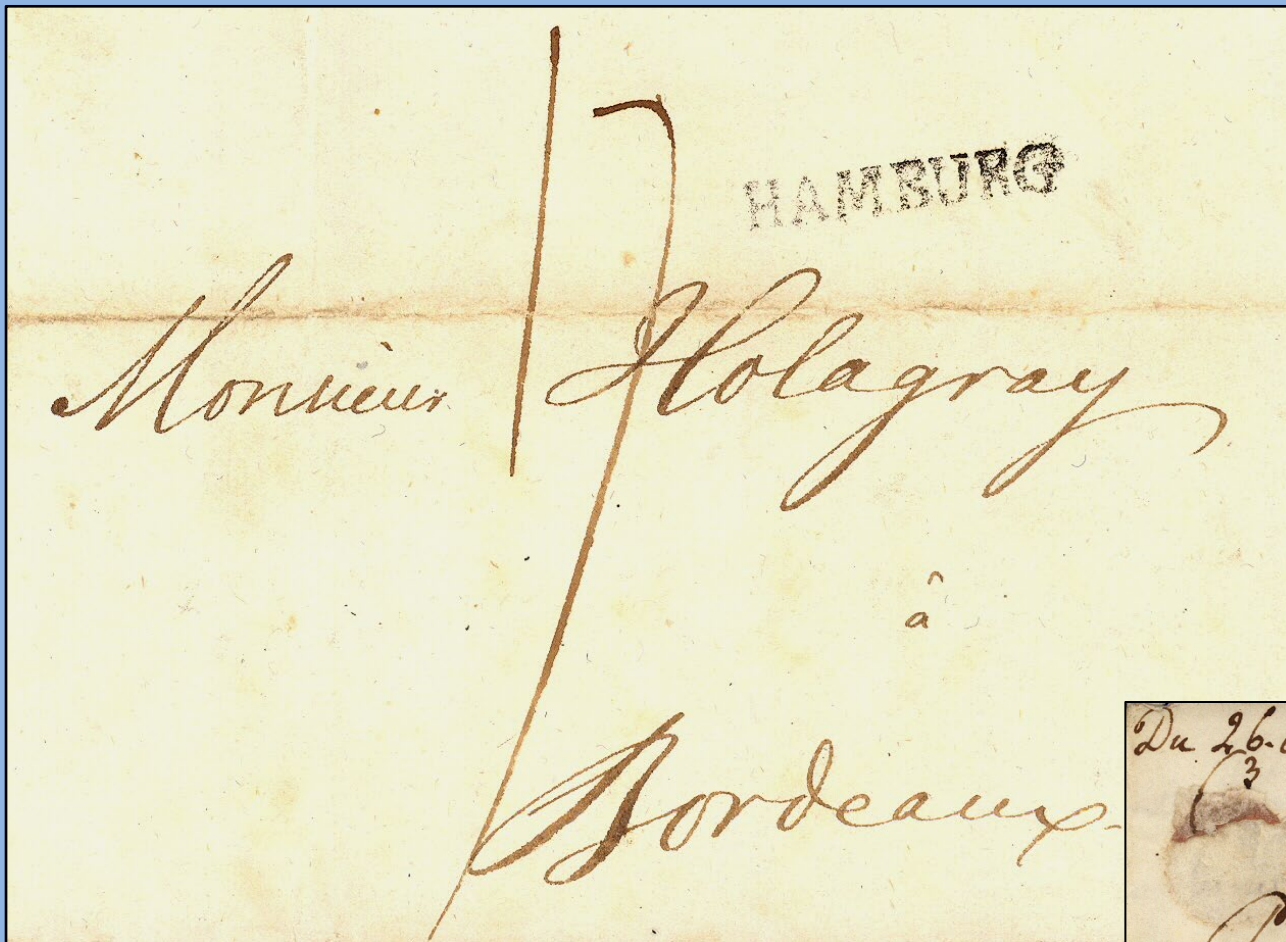 17
HAMBURG
Monsieur Holagray
â
Bordeaux.
Du 26.
3